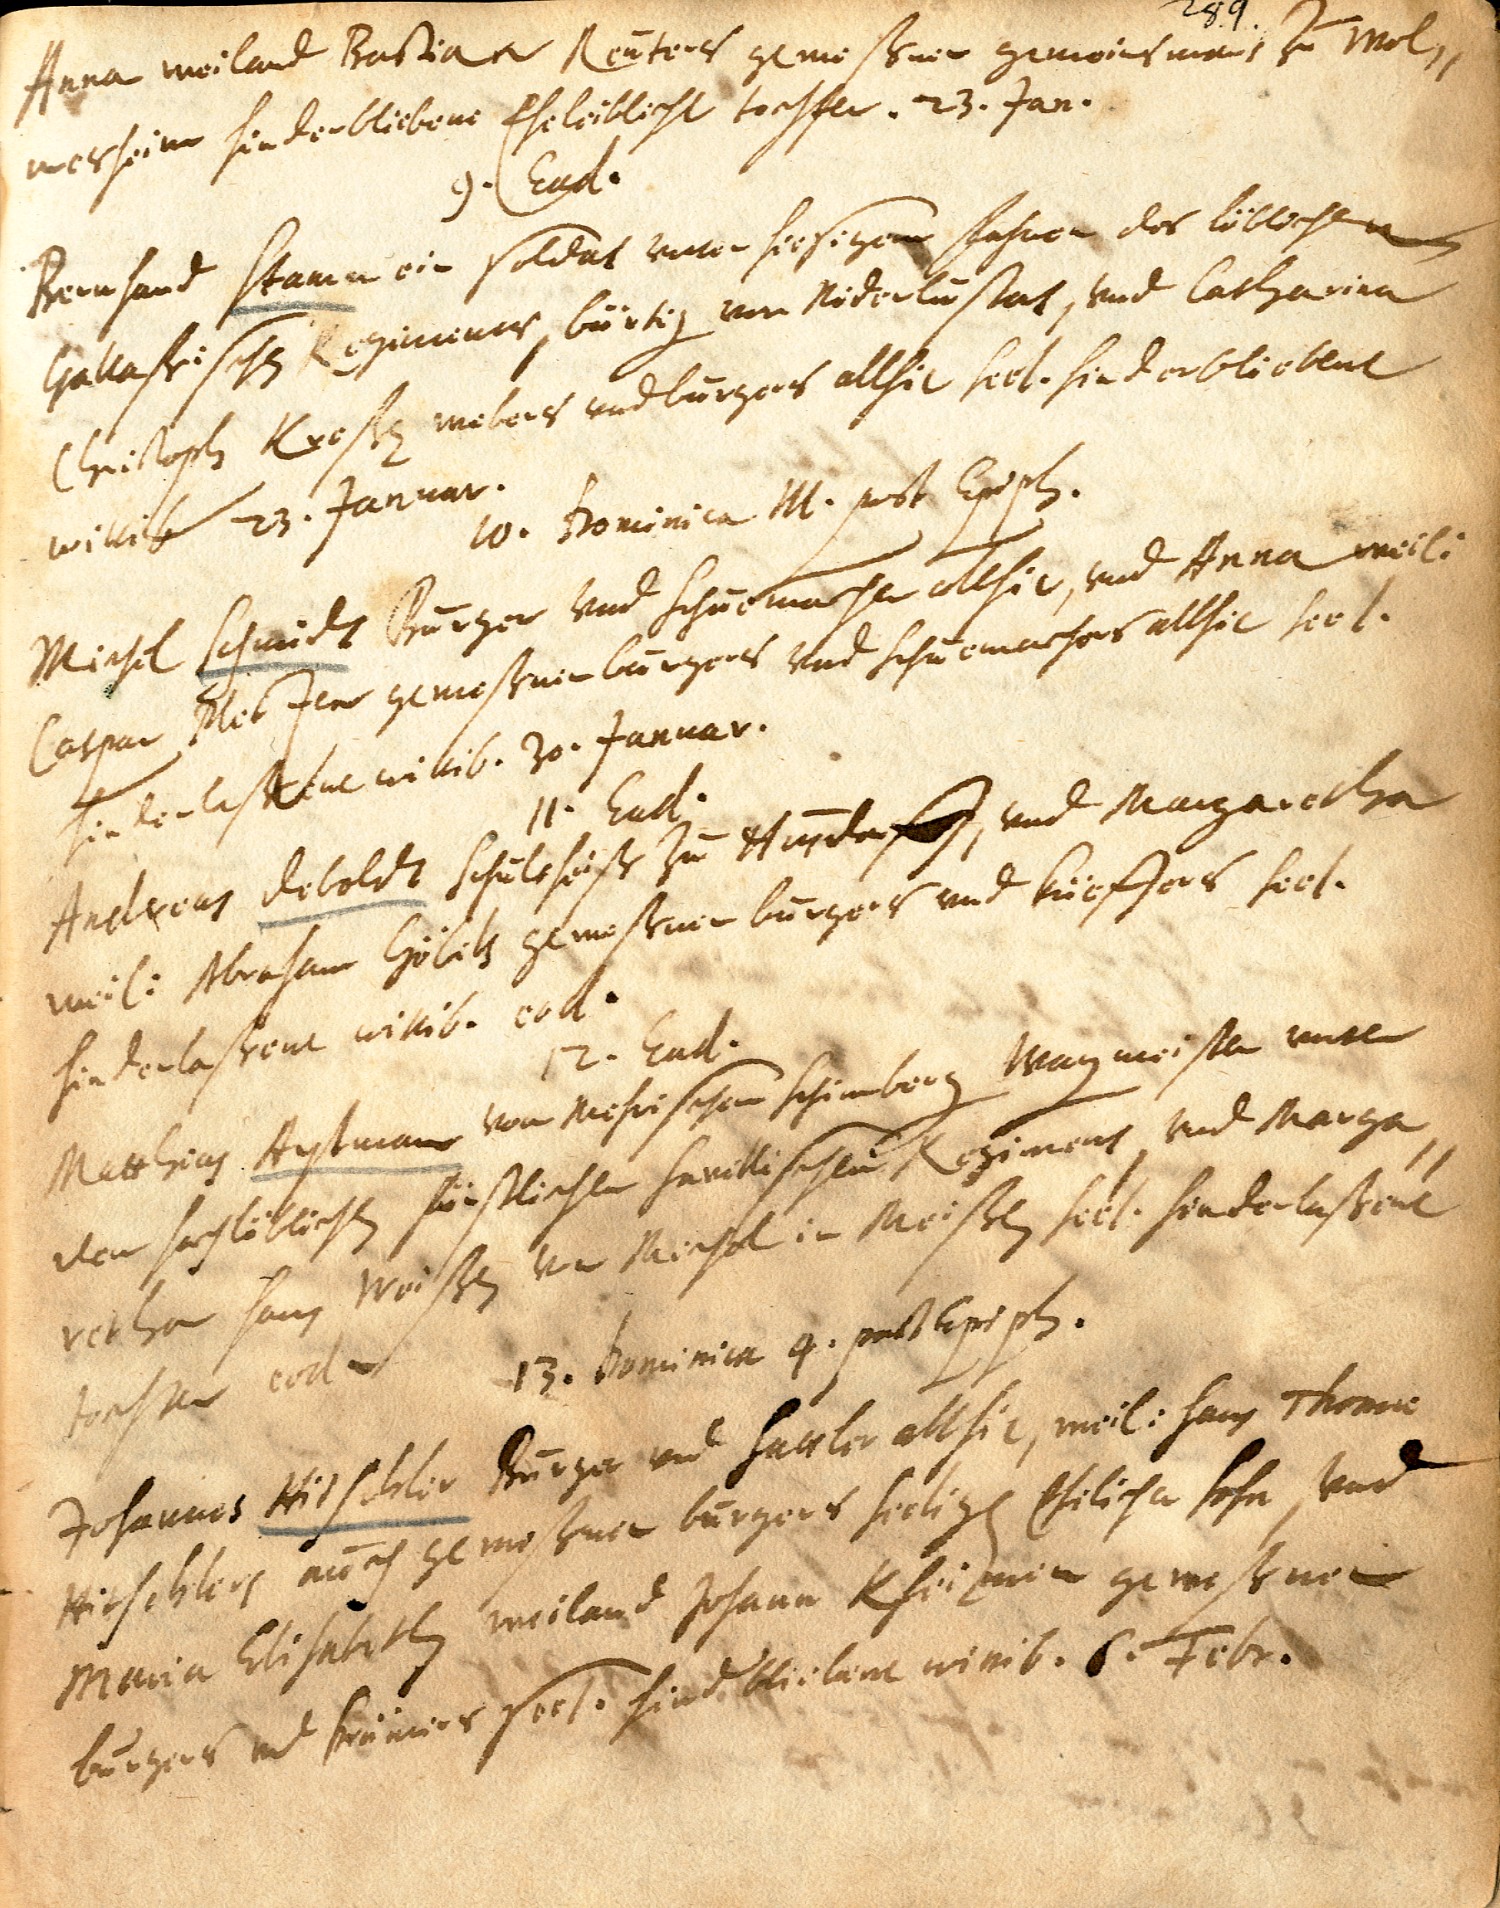 289.
Anna weiland Bastian Reuters gewesßner gemeinsmans zu Wol„
mesheim hinderbliebene Eheleibliche tochter. 23. Jan.
9. Ead.
Bernhard Stamm ein soldat unter hiesigem fahnen des löblichen
Gallassischen Regiments, bürtig von Niderlustat, und Catharina
Christoph webers und burgers allhie seel. hinderbliebene
wittib 23. Januar.
10. Dominica III. post Epiph.
Michel Schmidt Burger und Schuemacher allhie, und Anna weil:
Caspar gewesßnen burgers und schuemachers allhie seel.
hinderlaßene wittib. 30. Januar.
11. Ead.
Andreas Deboldt schultheiß zu und Margaretha
weil: Abraham Göbels gewesßnen burgers und küeffers seel.
hinderlaßene wittib. eod.
12. Ead.
Matthias von Mehrischem Schimberg Wagmeister unter
dem hochlöblichen fürstlichen Regiment, und Marga„
retha Hans Weißen von in Meißen seel. hinderlaßene
tochter eod.
13. Dominica 4. post Epiph.
Johannes Hitschler Burger und Sattler allhie, weil: Hans Thome
Hitschlers auch gewesßnen burgers seeligen Ehelicher sohn, und
Maria Elisabeth weiland Johann gewesßnen
burgers und krämers seel. hinderbliebene wittib. 6. Febr.